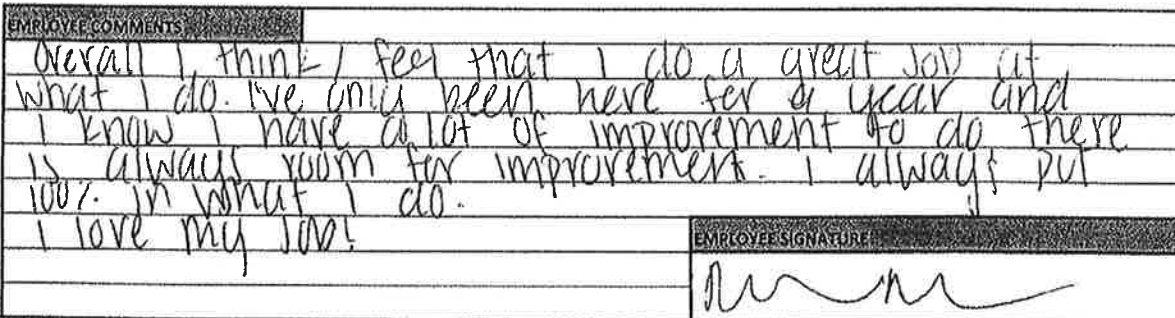 EMPLOYEE COMMENTS
Overall I think / feel that I do a great job at
what I do. I've only been here for a year and
I know I have a lot of improvement to do there
is always room for improvement. I always put
100% in what I do.
I love my job!
EMPLOYEE SIGNATURE